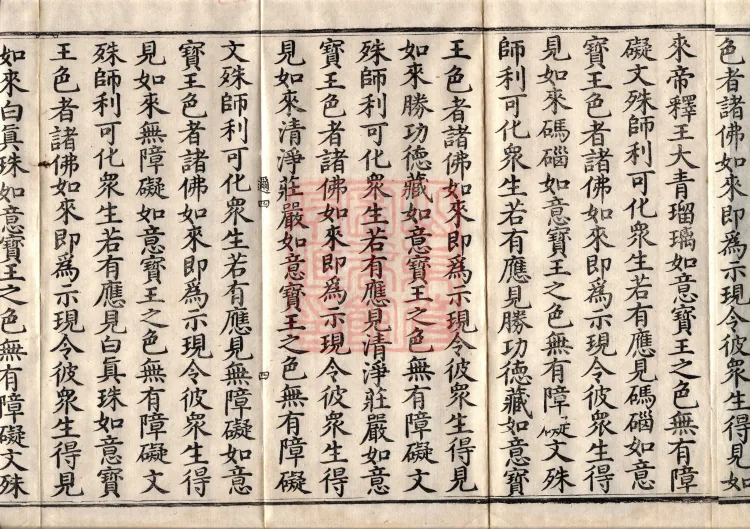 色者諸佛如來即爲示現令彼衆生得見如
來帝釋王大青瑠璃如意寶王之色無有障
礙文殊師利可化衆生若有應見碼碯如意
寶王色者諸佛如來即爲示現令彼衆生得
見如來碼碯如意寶王之色無有障礙文殊
師利可化衆生若有應見勝功德藏如意寶
王色者諸佛如來即爲示現令彼衆生得見
如來勝功德藏如意寶王之色無有障礙文
殊師利可化衆生若有應見清淨莊嚴如意
寶王色者諸佛如來即爲示現令彼衆生得
見如來清淨莊嚴如意寶王之色無有障礙
四 四
文殊師利可化衆生若有應見無障礙如意
寶王色者諸佛如來即爲示現令彼衆生得
見如來無障礙如意寶王之色無有障礙文
殊師利可化衆生若有應見白眞珠如意寶
王色者諸佛如來即爲示現令彼衆生得見
如來白眞珠如意寶王之色無有障礙文殊